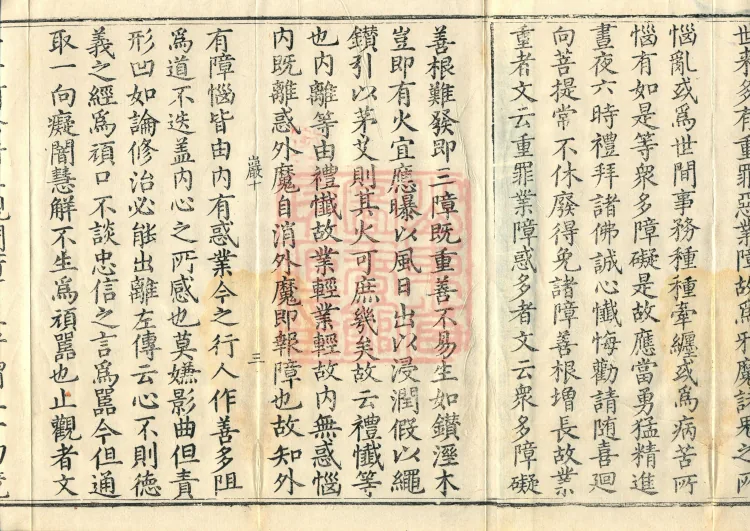 世来多有重罪惡業障故爲邪魔諸鬼之所
惱亂或爲世間事務種種牽纏或爲病苦所
惱有如是等衆多障礙是故應當勇猛精進
晝夜六時禮拜諸佛誠心懺悔勸請随喜廻
向菩提常不休廢得免諸障善根増長故業
重者文云重罪業障惑多者文云衆多障礙
善根難發即三障既重善不易生如鑚溼木
豈即有火宜應曝以風日出以浸潤假以繩
鑚引以茅艾則其火可庶幾矣故云禮懺等
也内離等由禮懺故業輕業輕故内無惑惱
内既離惑外魔自消外魔即報障也故知外
巖十 三
有障惱皆由内有惑業今之行人作善多阻
爲道不迭盖内心之所感也莫嫌影曲但責
形凹如論修治必能出離左傳云心不則徳
義之經爲頑口不談忠信之言爲嚚今但通
取一向癡闇慧解不生爲頑嚚也止觀者文